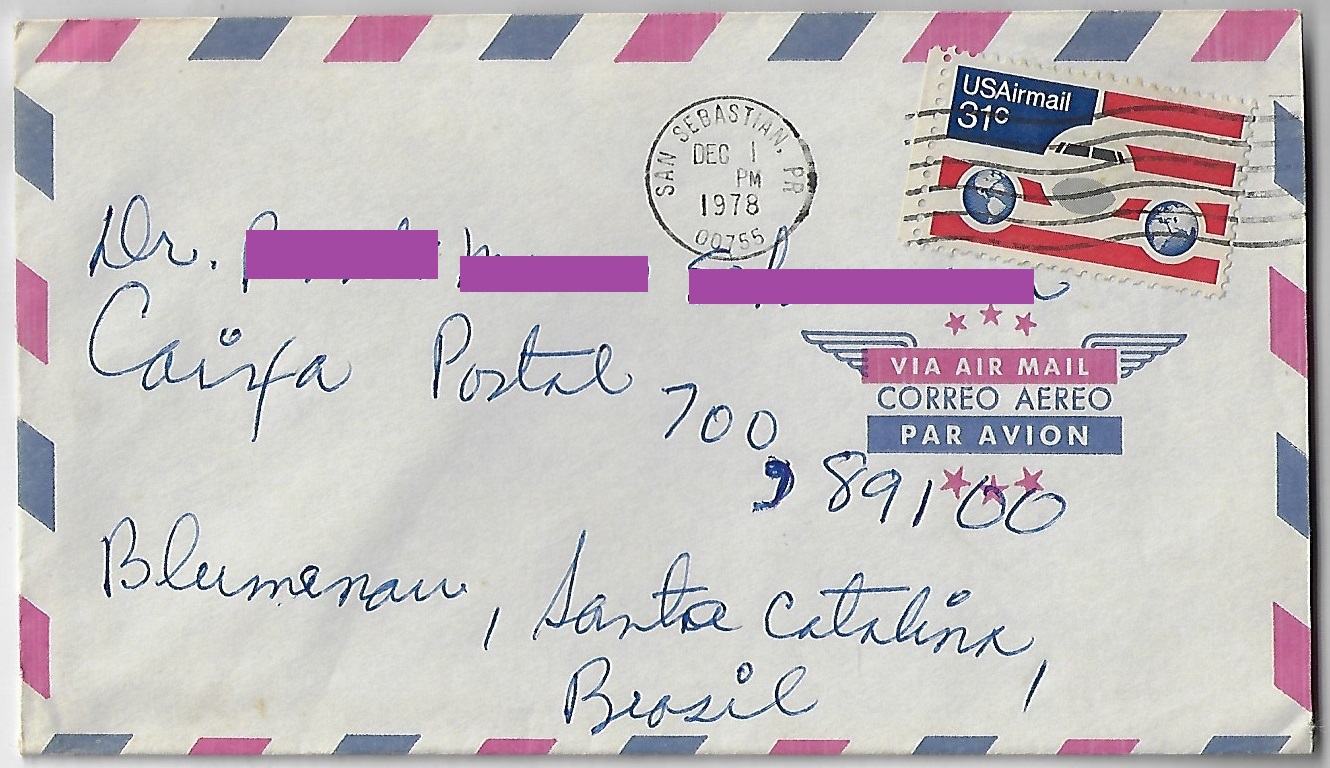 USAirmail
31c
SAN SEBASTIAN, PR
DEC 1
PM
1978
00755
Dr.
Caixa Postal 700
VIA AIR MAIL
CORREO AEREO
PAR AVION
, 89100
Blumenau, Santa Catalina,
Brasil